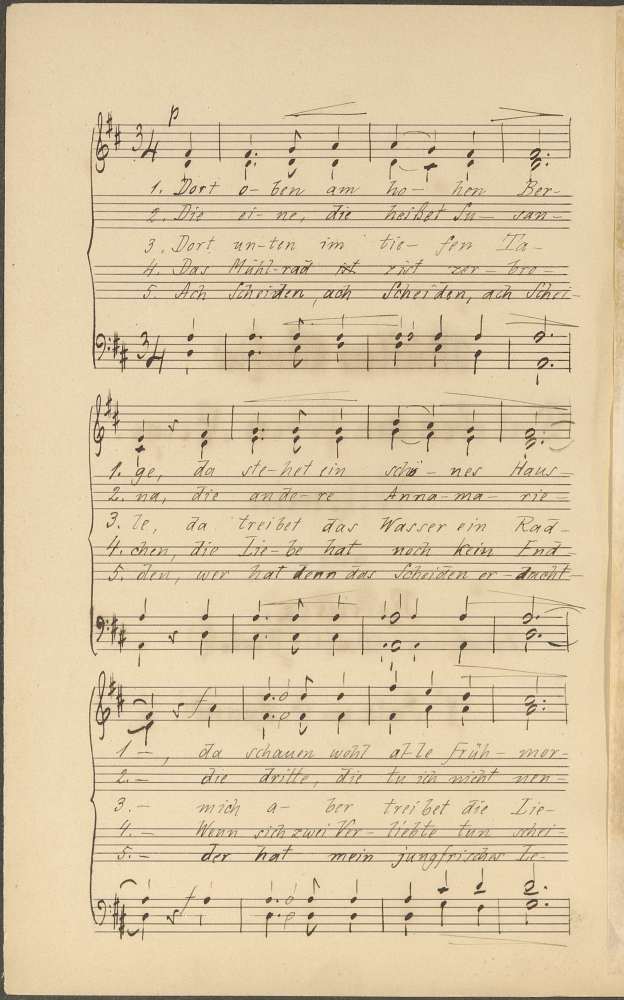 p
3/4
1. Dort o- ben am ho- hen Ber-
2. Die ei- ne, die heißet Su- san-
3. Dort un-ten im tie- fen Ta-
4. Das Mühl-rad ist zer- bro-
5. Ach Scheiden, ach Scheiden, ach Schei-
3/4
1. ge, da ste-het ein schö- nes Haus-
2. na, die an de- re Anna-ma- rie-
3. le, da treibet das Wasser ein Rad-
4. chen, die Lie- be hat noch kein End-
5. den, wer hat denn das Scheiden er-dacht-
f
1 -, da schauen wohl al-le früh- mor-
2. - die dritte, die tu ich nicht nen-
3. - mich a- ber treibet die Lie-
4. - Wenn sich zwei Ver- liebte tun schei-
5. - der hat mein jungfrisches Le-
f
p